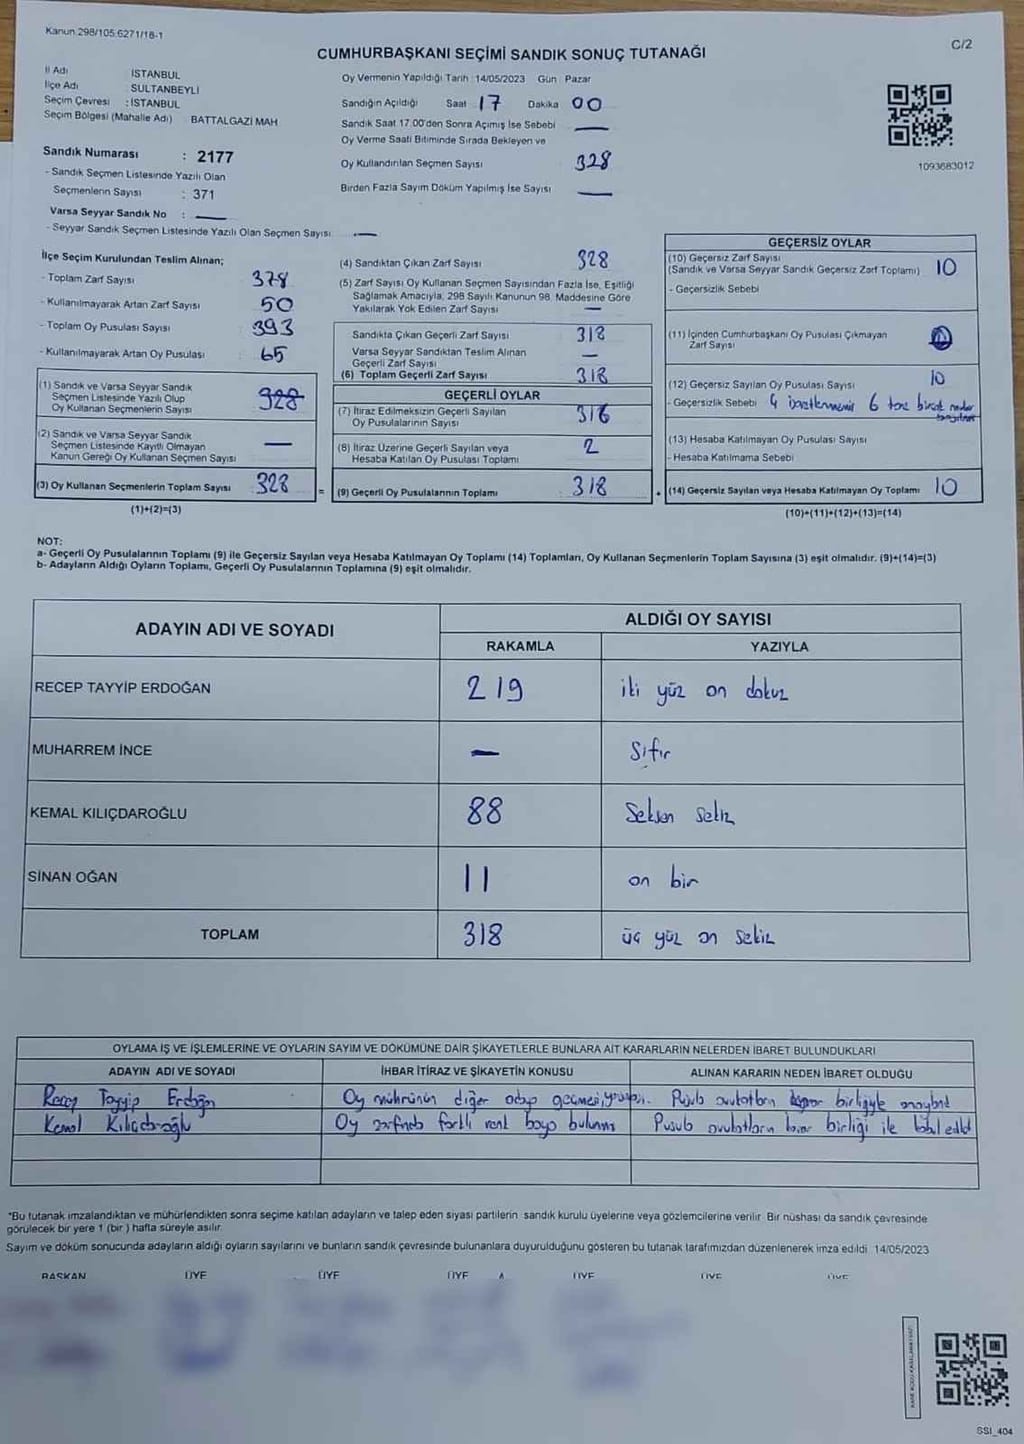 Kanun.298/105.6271/18-1
C/2
CUMHURBAŞKANI SEÇİMİ SANDIK SONUÇ TUTANAĞI
İl Adı İSTANBUL
İlçe Adı SULTANBEYLİ
Seçim Çevresi : İSTANBUL
Seçim Bölgesi (Mahalle Adı) BATTALGAZİ MAH
Sandık Numarası : 2177
- Sandık Seçmen Listesinde Yazılı Olan
Seçmenlerin Sayısı : 371
Varsa Seyyar Sandık No : —
- Seyyar Sandık Seçmen Listesinde Yazılı Olan Seçmen Sayısı —
Oy Vermenin Yapıldığı Tarih 14/05/2023 Gün Pazar
Sandığın Açıldığı Saat 17 Dakika 00
Sandık Saat 17.00'den Sonra Açımış İse Sebebi —
Oy Verme Saati Bitiminde Sırada Bekleyen ve
Oy Kullandırılan Seçmen Sayısı 328
Birden Fazla Sayım Döküm Yapılmış İse Sayısı —
1093683012
İlçe Seçim Kurulundan Teslim Alınan;
- Toplam Zarf Sayısı 378
- Kullanılmayarak Artan Zarf Sayısı 50
- Toplam Oy Pusulası Sayısı 393
- Kullanılmayarak Artan Oy Pusulası 65
(1) Sandık ve Varsa Seyyar Sandık
Seçmen Listesinde Yazılı Olup
Oy Kullanan Seçmenlerin Sayısı 328
(2) Sandık ve Varsa Seyyar Sandık
Seçmen Listesinde Kayıtlı Olmayan
Kanun Gereği Oy Kullanan Seçmen Sayısı —
(3) Oy Kullanan Seçmenlerin Toplam Sayısı 328
(1)+(2)=(3)
(4) Sandıktan Çıkan Zarf Sayısı 328
(5) Zarf Sayısı Oy Kullanan Seçmen Sayısından Fazla İse, Eşitliği
Sağlamak Amacıyla, 298 Sayılı Kanunun 98. Maddesine Göre
Yakılarak Yok Edilen Zarf Sayısı —
Sandıkta Çıkan Geçerli Zarf Sayısı 318
Varsa Seyyar Sandıktan Teslim Alınan
Geçerli Zarf Sayısı —
(6) Toplam Geçerli Zarf Sayısı 318
GEÇERLİ OYLAR
(7) İtiraz Edilmeksizin Geçerli Sayılan
Oy Pusulalarının Sayısı 316
(8) İtiraz Üzerine Geçerli Sayılan veya
Hesaba Katılan Oy Pusulası Toplamı 2
= (9) Geçerli Oy Pusulalarının Toplamı 318
GEÇERSİZ OYLAR
(10) Geçersiz Zarf Sayısı
(Sandık ve Varsa Seyyar Sandık Geçersiz Zarf Toplamı) 10
- Geçersizlik Sebebi
(11) İçinden Cumhurbaşkanı Oy Pusulası Çıkmayan
Zarf Sayısı
(12) Geçersiz Sayılan Oy Pusulası Sayısı 10
- Geçersizlik Sebebi 4 6
(13) Hesaba Katılmayan Oy Pusulası Sayısı
- Hesaba Katılmama Sebebi
+ (14) Geçersiz Sayılan veya Hesaba Katılmayan Oy Toplamı 10
(10)+(11)+(12)+(13)=(14)
NOT:
a- Geçerli Oy Pusulalarının Toplamı (9) ile Geçersiz Sayılan veya Hesaba Katılmayan Oy Toplamı (14) Toplamları, Oy Kullanan Seçmenlerin Toplam Sayısına (3) eşit olmalıdır. (9)+(14)=(3)
b- Adayların Aldığı Oyların Toplamı, Geçerli Oy Pusulalarının Toplamına (9) eşit olmalıdır.
ADAYIN ADI VE SOYADI
ALDIĞI OY SAYISI
RAKAMLA YAZIYLA
RECEP TAYYİP ERDOĞAN 219 iki yüz on dokuz
MUHARREM İNCE — Sıfır
KEMAL KILIÇDAROĞLU 88 Seksen sekiz
SİNAN OĞAN 11 on bir
TOPLAM 318 üç yüz on sekiz
OYLAMA İŞ VE İŞLEMLERİNE VE OYLARIN SAYIM VE DÖKÜMÜNE DAİR ŞİKAYETLERLE BUNLARA AİT KARARLARIN NELERDEN İBARET BULUNDUKLARI
ADAYIN ADI VE SOYADI İHBAR İTİRAZ VE ŞİKAYETİN KONUSU ALINAN KARARIN NEDEN İBARET OLDUĞU
Recep Tayyip Erdoğan Oy mührünün diğer birliğiyle
Kemal Kılıçdaroğlu Oy zarfında farklı renk boya birliği ile kabul edildi
*Bu tutanak imzalandıktan ve mühürlendikten sonra seçime katılan adayların ve talep eden siyasi partilerin sandık kurulu üyelerine veya gözlemcilerine verilir. Bir nüshası da sandık çevresinde
görülecek bir yere 1 (bir ) hafta süreyle asılır.
Sayım ve döküm sonucunda adayların aldığı oyların sayılarını ve bunların sandık çevresinde bulunanlara duyurulduğunu gösteren bu tutanak tarafımızdan düzenlenerek imza edildi 14/05/2023
BAŞKAN ÜYE ÜYE ÜYE ÜYE ÜYE ÜYE
SSI_404